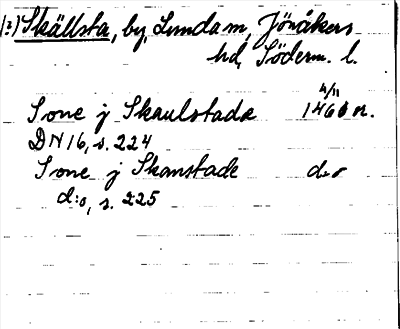 1:) Skällsta, by, Lunda sn, Jönåkers
hd, Söderm. l.
4/11
Sone j Skaulstade 1460 n.
DN 16, s. 224
Sone j Skanstade d:o
d:o, s. 225